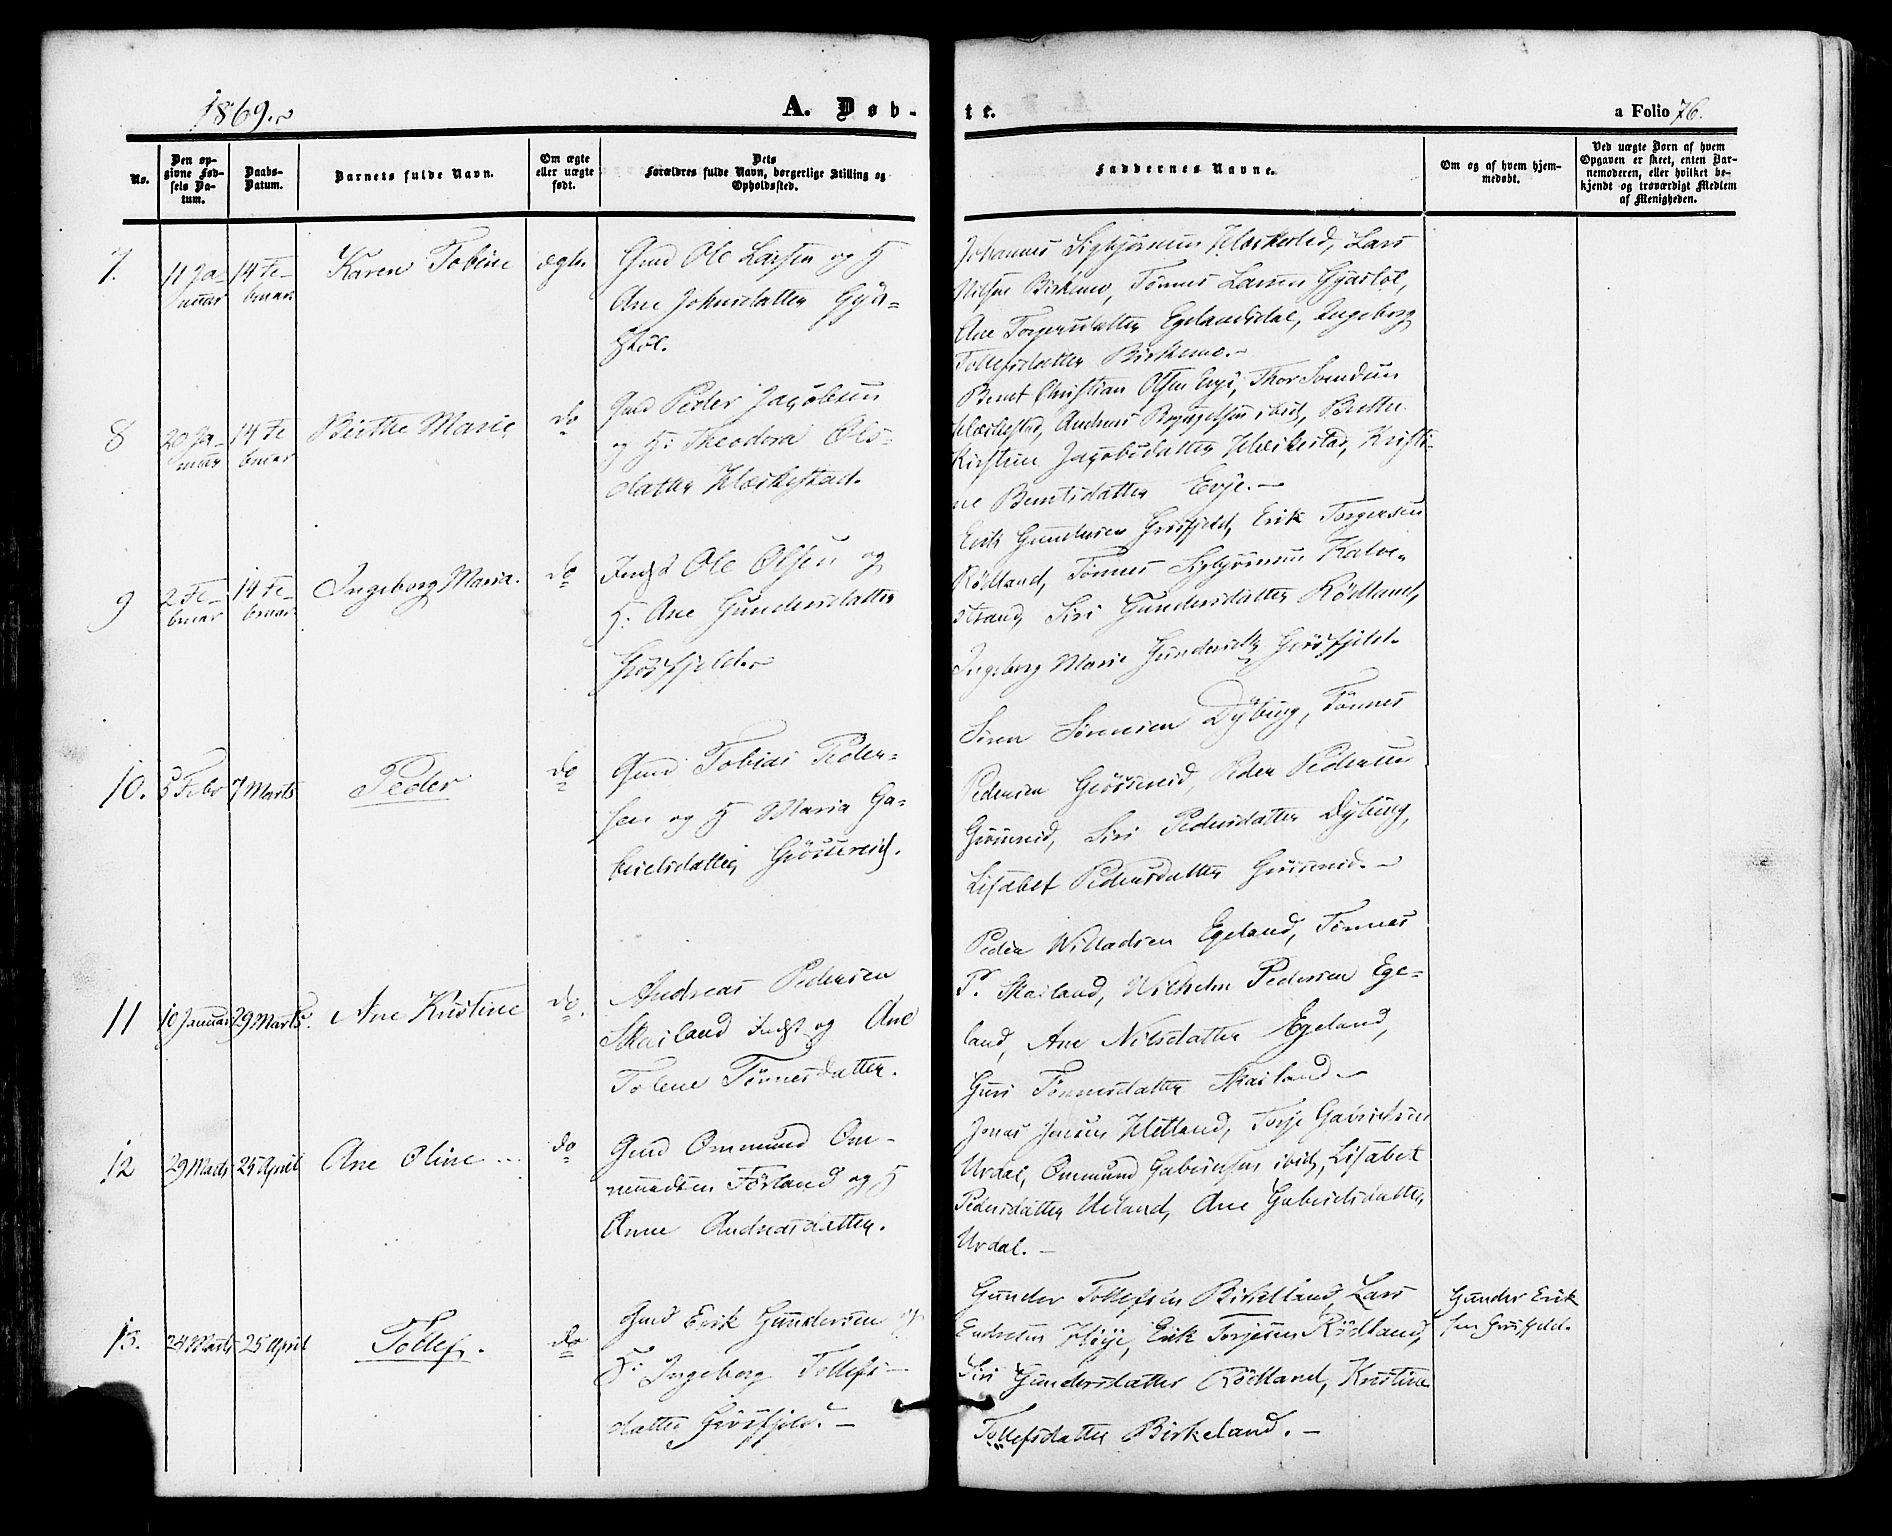 1869.
A. Døb-
te.
a Folio 76.
No.
Den op-
givne Fød-
sels Da-
tum.
Daabs-
Datum.
Barnets fulde Navn.
Om ægte
eller uægte
født.
Dets
Forældres fulde Navn, borgerlige Stilling og
Opholdssted.
Faddernes Navne.
Om og af hvem hjem-
medøbt.
Ved uægte Børn af hvem
Opgaven er skeet, enten Bar-
nemoderen, eller hvilket be-
kjendt og troværdigt Medlem
af Menigheden.
7.
11 Ja-
nuar
14 Fe-
bruar
Karen Tobine
ægte
Gmd Ole Larsen og H
Ane Johnsdatter Gya-
støl.
Johannes Sigbjørnsen Hæskestad, Lars
Nilsen Birkemo, Tønnes Larsen Gyastøl,
Ane Torgersdatter Egelandsdal, Ingeborg
Tollefsdatter Birkemo.-
8
20 Ja-
nuar
14 Fe
bruar
Birthe Marie
do
Gmd Peder Jacobsen
og H: Theodora Ols-
datter Hæskestad.
Bent Christian Olsen Evje, Thor Svendsen
Hæskestad, Andreas ibid, Berthe
Kirstine Jacobsdatter Hæskestad, Kristi-
ne Berntsdatter Evje.-
9
2 Fe-
bruar
14 Fe
bruar
Ingeborg Maria.
do
Indst Ole Olsen og
H. Ane Gundersdatter
Grøsfjeld.
Erik Gundersen Grøsfjeld, Erik Torgersen
Rödland, Tönnes Sigbjørnsen Kalve-
strand, Siri Gundersdatter Rödland,
Ingeborg Marie Gundersdtr Grøsfjeld.
10.
5 Febr
7 Marts
Peder
do
Gmd Tobias Peder-
sen og H Maria Ga-
brielsdatter Grössereid.
Sören Sörensen Dybing, Tönnes
Pedersen Grösereid, Peder Pedersen
Grösereid, Siri Pedersdatter Dybing,
Lisabet Pedersdatter Grösereid.-
11
10 Januar
29 Marts.
Ane Kristine
do.
Andreas Pedersen
Skailand Indst og Ane
Tolene Tönnesdatter.
Peder Willadsen Egeland, Tönnes
P. Skailand, Wilhelm Pedersen Ege-
land, Ane Nilsdatter Egeland,
Guri Tönnesdatter Skailand.-
12
29 Marts
25 April
Ane Oline
do
Gmd Ommund Om-
mundsen Förland og H
Anne Andreasdatter.
Jonas Jensen Hetland, Torje Gabrielsen
Urdal, Ommund Gabrielsen ibid, Lisabet
Pedersdatter Ueland, Ane Gabrielsdatter
Urdal.-
13.
24 Marts
25 April
Tollef.
do
Gmd Erik Gundersen og
H: Ingeborg Tollefs-
datter Grösfjeld.-
Gunder Tollefsen Birkelland, Lars
Endresen Höije, Erik Torjesen Rödland,
Siri Gundersdatter Rödland, Kristine
Tollefsdatter Birkeland.-
Gunder Erik
sen Grösfjeld.